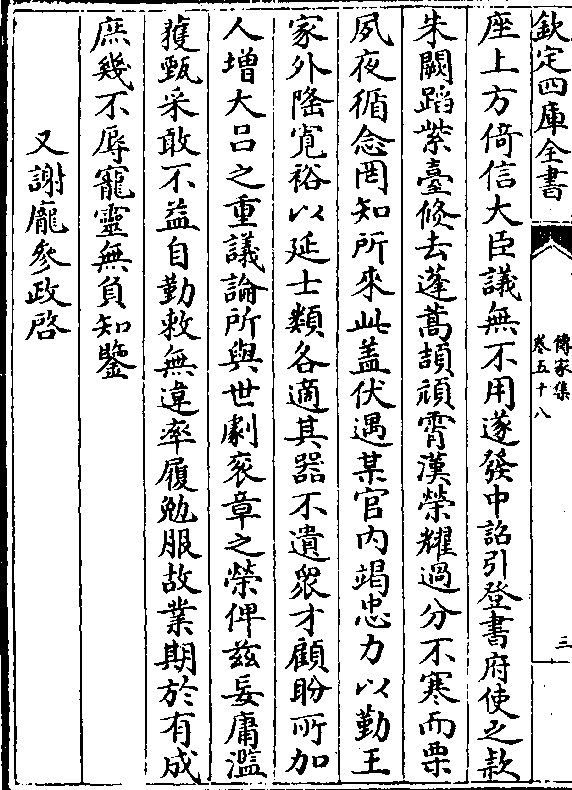 欽定四庫全書
傳家集
卷五十八
三
座上方倚信大臣議無不用遂發中詔引登書府使之款
朱闕蹈紫臺倏去蓬蒿頡頏霄漢榮耀過分不寒而栗
夙夜循念罔知所來此蓋伏遇某官內竭忠力以勤王
家外隆寛裕以延士類各適其器不遺衆才顧盼所加
人增大呂之重議論所與世劇袞章之榮俾兹妄庸濫
獲甄采敢不益自勤敕無違率履勉服故業期於有成
庶幾不辱寵靈無負知鑒
又謝龐參政啓